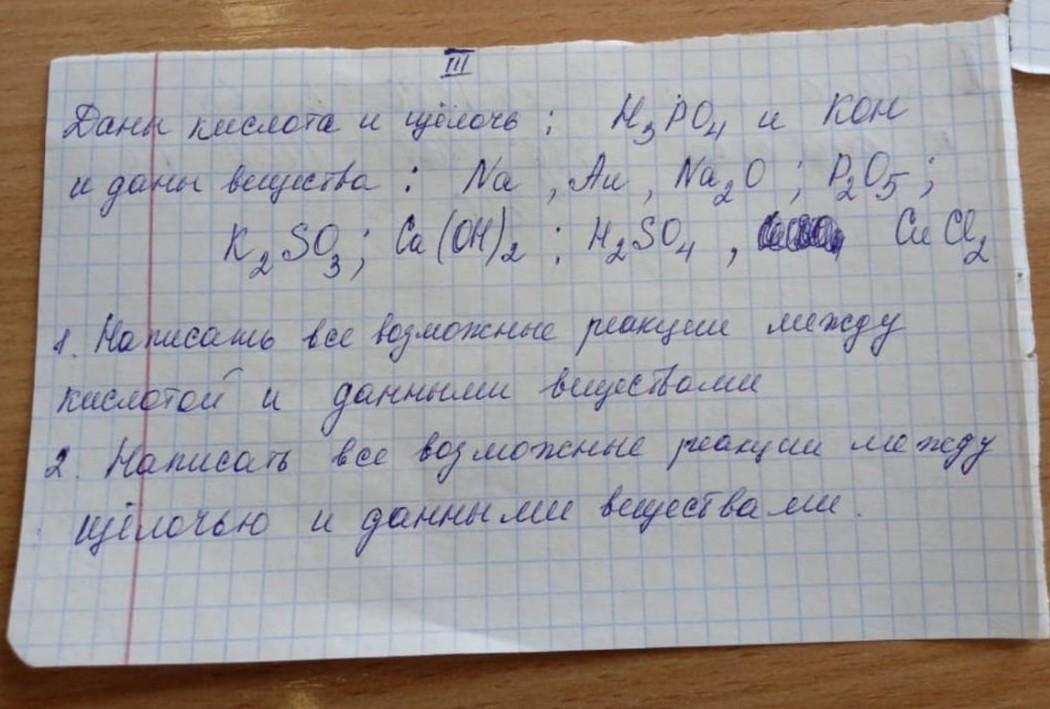 III
Даны кислота и щёлочь : H₃PO₄ и KOH
и даны вещества : Na , Au , Na₂O ; P₂O₅ ;
K₂SO₃ ; Ca(OH)₂ ; H₂SO₄ , CuCl₂
1. Написать все возможные реакции между
кислотой и данными веществами
2. Написать все возможные реакции между
щёлочью и данными веществами.